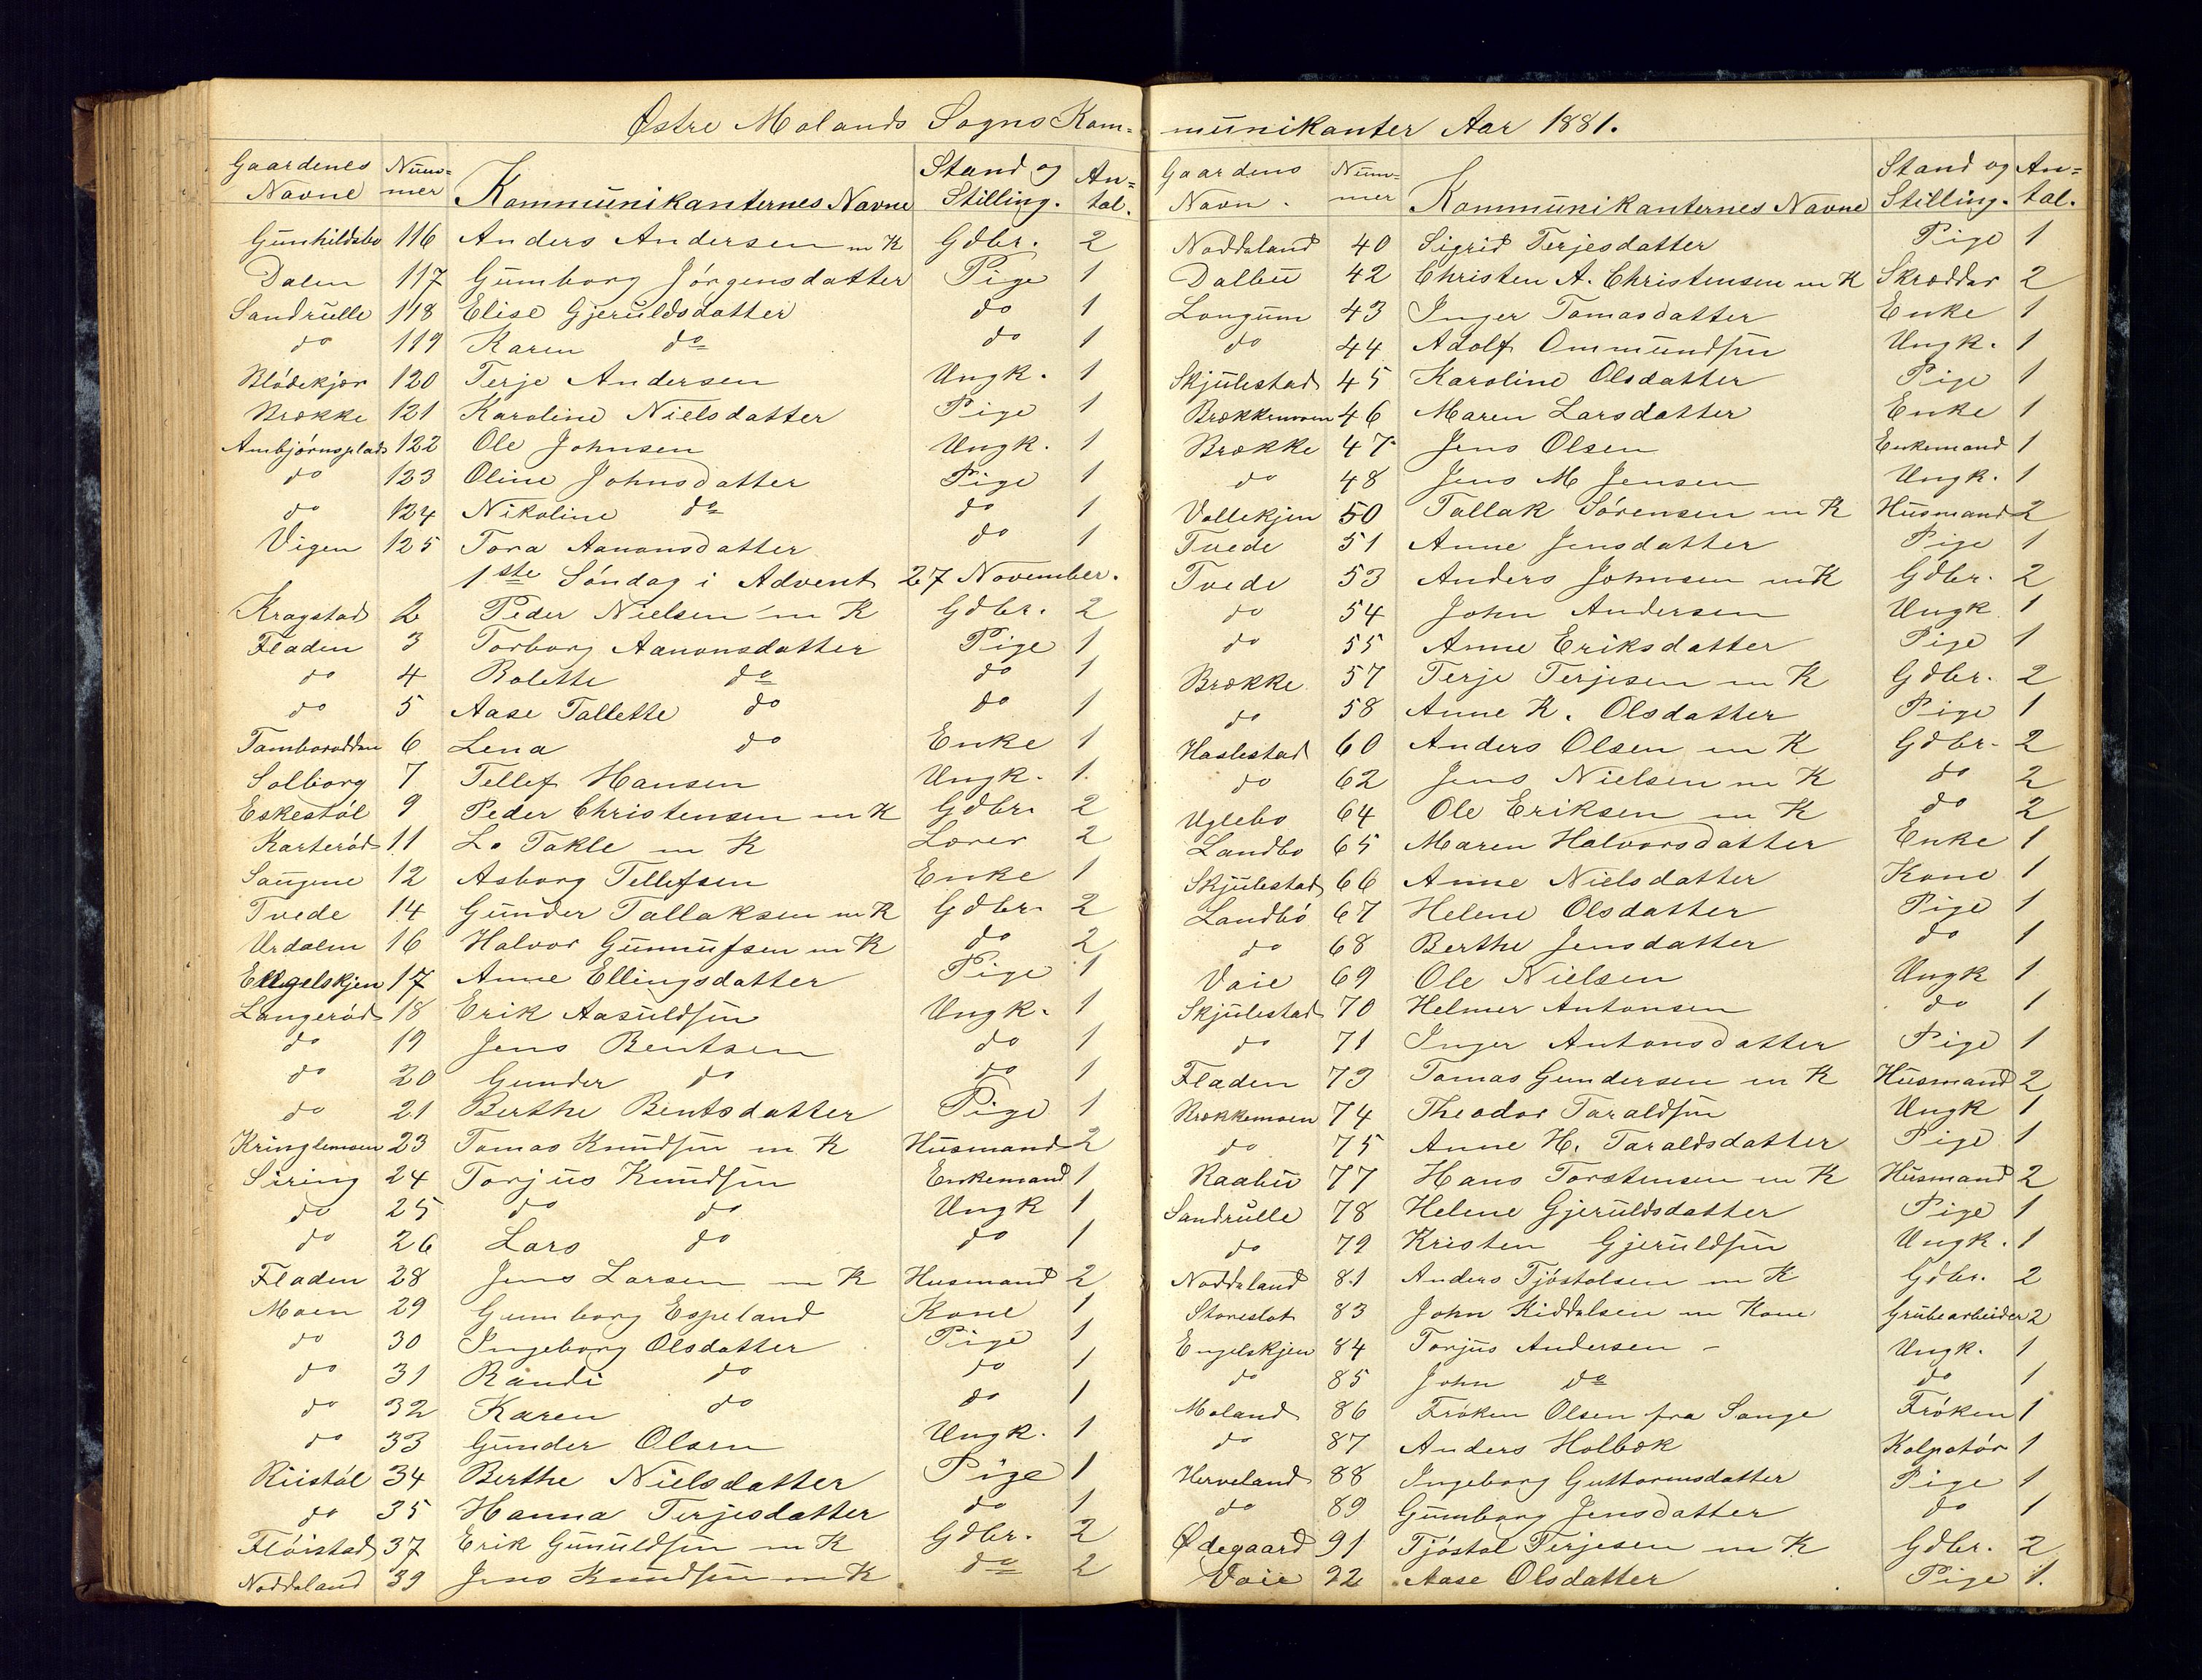 Østre Molands Sogns Kom-
Gaardenes Navne Num-mer Kommunikanternes Navne Stand og Stilling. An-tal.
Gunhildsbo 116 Anders Andersen m K Gdbr. 2
Dalen 117 Gumborg Jörgensdatter Pige 1
Sandrulle 118 Elise Gjeruldsdatter do 1
do 119 Karen do do 1
Blödekjær 120 Terje Andersen Ungk. 1
Brække 121 Karoline Nielsdatter Pige 1
Ambjörnsplads 122 Ole Johnsen Ungk. 1
do 123 Oline Johnsdatter Pige 1
do 124 Nikoline do do 1
Vigen 125 Tora Aanonsdatter do 1
1ste Söndag i Advent 27 November.
Kragstad 2 Peder Nielsen m K Gdbr. 2
Fladen 3 Torborg Aanonsdatter Pige 1
do 4 Bolette do do 1
do 5 Aase Tallette do do 1
6 Lena do Enke 1
Solborg 7 Tellef Hansen Ungk. 1.
Eskestöl 9 Peder Christensen m K Gdbr. 2
Karteröd 11 L. Takle m K Lærer 2
Saugene 12 Asborg Tellefsen Enke 1
Tvede 14 Gunder Tallaksen m K Gdbr. 2
Urdalen 16 Halvor Gunnufsen m K do 2
Engelskjen 17 Anne Ellingsdatter Pige 1
Langeröd 18 Erik Aasuldsen Ungk. 1
do 19 Jens Bentsen do 1
do 20 Gunder do do 1
do 21 Berthe Bentsdatter Pige 1
Kringlemoen 23 Tomas Knudsen m K Husmand 2
Siring 24 Torjus Knudsen Enkemand 1
do 25 do do Ungk 1
do 26 Lars do do 1
Fladen 28 Jens Larsen m K Husmand 2
Moen 29 Gumborg Espeland Kone 1
do 30 Ingeborg Olsdatter Pige 1
do 31 Randi do do 1
do 32 Karen do do 1
do 33 Gunder Olsen Ungk. 1
Riistöl 34 Berthe Nielsdatter Pige 1
do 35 Hanna Terjesdatter do 1
Flöistad 37 Erik Gunuldsen m K Gdbr. 2
Noddeland 39 Jens Knudsen m K do 2
munikanter Aar 1881.
Gaardens Navn. Num-mer Kommunikanternes Navne Stand og Stilling. An-tal.
Noddeland 40 Sigrid Terjesdatter Pige 1
Dalbu 42 Christen A. Christensen m K Skrædder 2
Longum 43 Inger Tomasdatter Enke 1
do 44 Adolf Ommundsen Ungk. 1
Skjulestad 45 Karoline Olsdatter Pige 1
Brækkemoen 46 Maren Larsdatter Enke 1
Brække 47 Jens Olsen Enkemand 1
do 48 Jens M Jensen Ungk. 1
Vallekjen 50 Tallak Sörensen m K Husmand 2
Tvede 51 Anne Jensdatter Pige 1
Tvede 53 Anders Johnsen m K Gdbr. 2
do 54 John Andersen Ungk 1
do 55 Anne Eriksdatter Pige 1
Brække 57 Terje Terjesen m K Gdbr. 2
do 58 Anne K. Olsdatter Pige 1
Haslestad 60 Anders Olsen m K Gdbr. 2
do 62 Jens Nielsen m K do 2
Uglebo 64 Ole Eriksen m K do 2
Landbo 65 Maren Halvorsdatter Enke 1
Skjulestad 66 Anne Nielsdatter Kone 1
Landbö 67 Helene Olsdatter Pige 1
do 68 Berthe Jensdatter do 1
Vaie 69 Ole Nielsen Ungk 1
Skjulestad 70 Helmer Antonsen do 1
do 71 Inger Antonsdatter Pige 1
Fladen 73 Tomas Gundersen m K Husmand 2
Brækkemoen 74 Theodor Taraldsen Ungk 1
do 75 Anne H. Taraldsdatter Pige 1
Raabu 77 Hans Torstensen m K Husmand 2
Sandrulle 78 Helene Gjeruldsdatter Pige 1
do 79 Kristen Gjeruldsen Ungk. 1
Noddeland 81 Anders Tjöstolsen m K Gdbr. 2
Storeslot 83 John Kiddelsen m Kone Grubearbeider 2
Engelskjen 84 Torjus Andersen - Ungk. 1
do 85 John do do 1
Moland 86 Fröken Olsen fra Sange Fröken 1
do 87 Anders Holbek Kolpotör 1
Herveland 88 Ingeborg Guttormsdatter Pige 1
do 89 Gumborg Jensdatter do 1
Ødegaard 91 Tjöstol Terjesen m K Gdbr. 2
Vaie 92 Aase Olsdatter Pige 1.